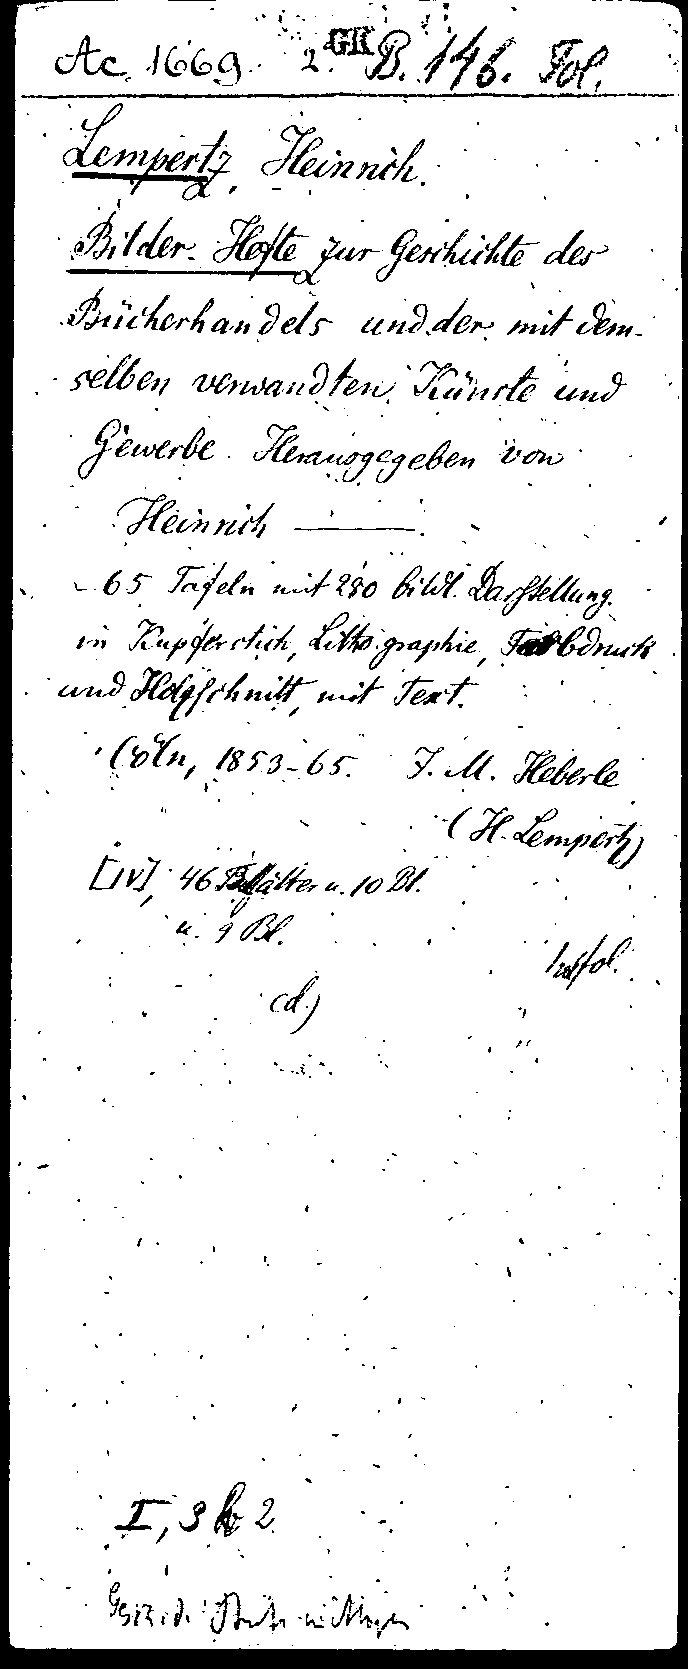 Ac. 1669. 2. GK B. 146. Fol.
Lempertz, Heinrich.
Bilder-Hefte zur Geschichte des
Bücherhandels und der mit dem-
selben verwandten Künste und
Gewerbe. Herausgegeben von
Heinrich ———.
- 65 Tafeln mit 280 bildl. Darstellung.
in Kupferstich, Lithographie, Farbdruck
und Holzschnitt, mit Text.
Cöln, 1853-65. J. M. Heberle
(H. Lempertz)
[IV], 46 Blätter u. 10 Bl.
u. 9 Bl.
fol.
(d.)
I, 3 2